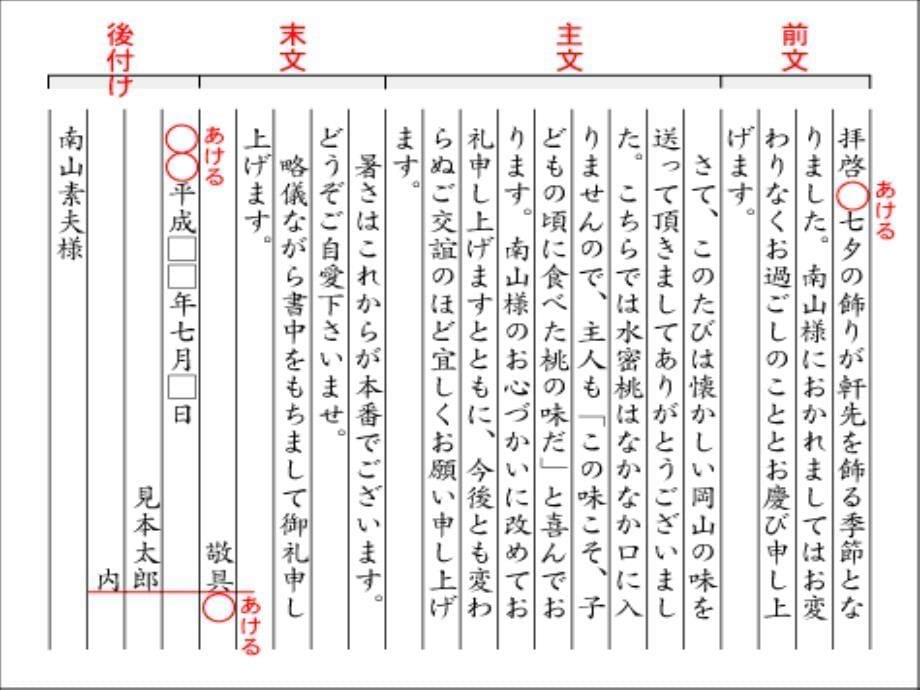 前文
主文
末文
後付け
拝啓〇七夕の飾りが軒先を飾る季節とな
あける
りました。南山様におかれましてはお変
わりなくお過ごしのこととお慶び申し上
げます。
さて、このたびは懐かしい岡山の味を
送って頂きましてありがとうございまし
た。こちらでは水密桃はなかなか口に入
りませんので、主人も「この味こそ、子
どもの頃に食べた桃の味だ」と喜んでお
ります。南山様のお心づかいに改めてお
礼申し上げますとともに、今後とも変わ
らぬご交誼のほど宜しくお願い申し上げ
ます。
暑さはこれからが本番でございます。
どうぞご自愛下さいませ。
略儀ながら書中をもちまして御礼申し
上げます。
敬具〇
あける
〇〇平成□□年七月□日
あける
見本太郎
内
南山素夫様